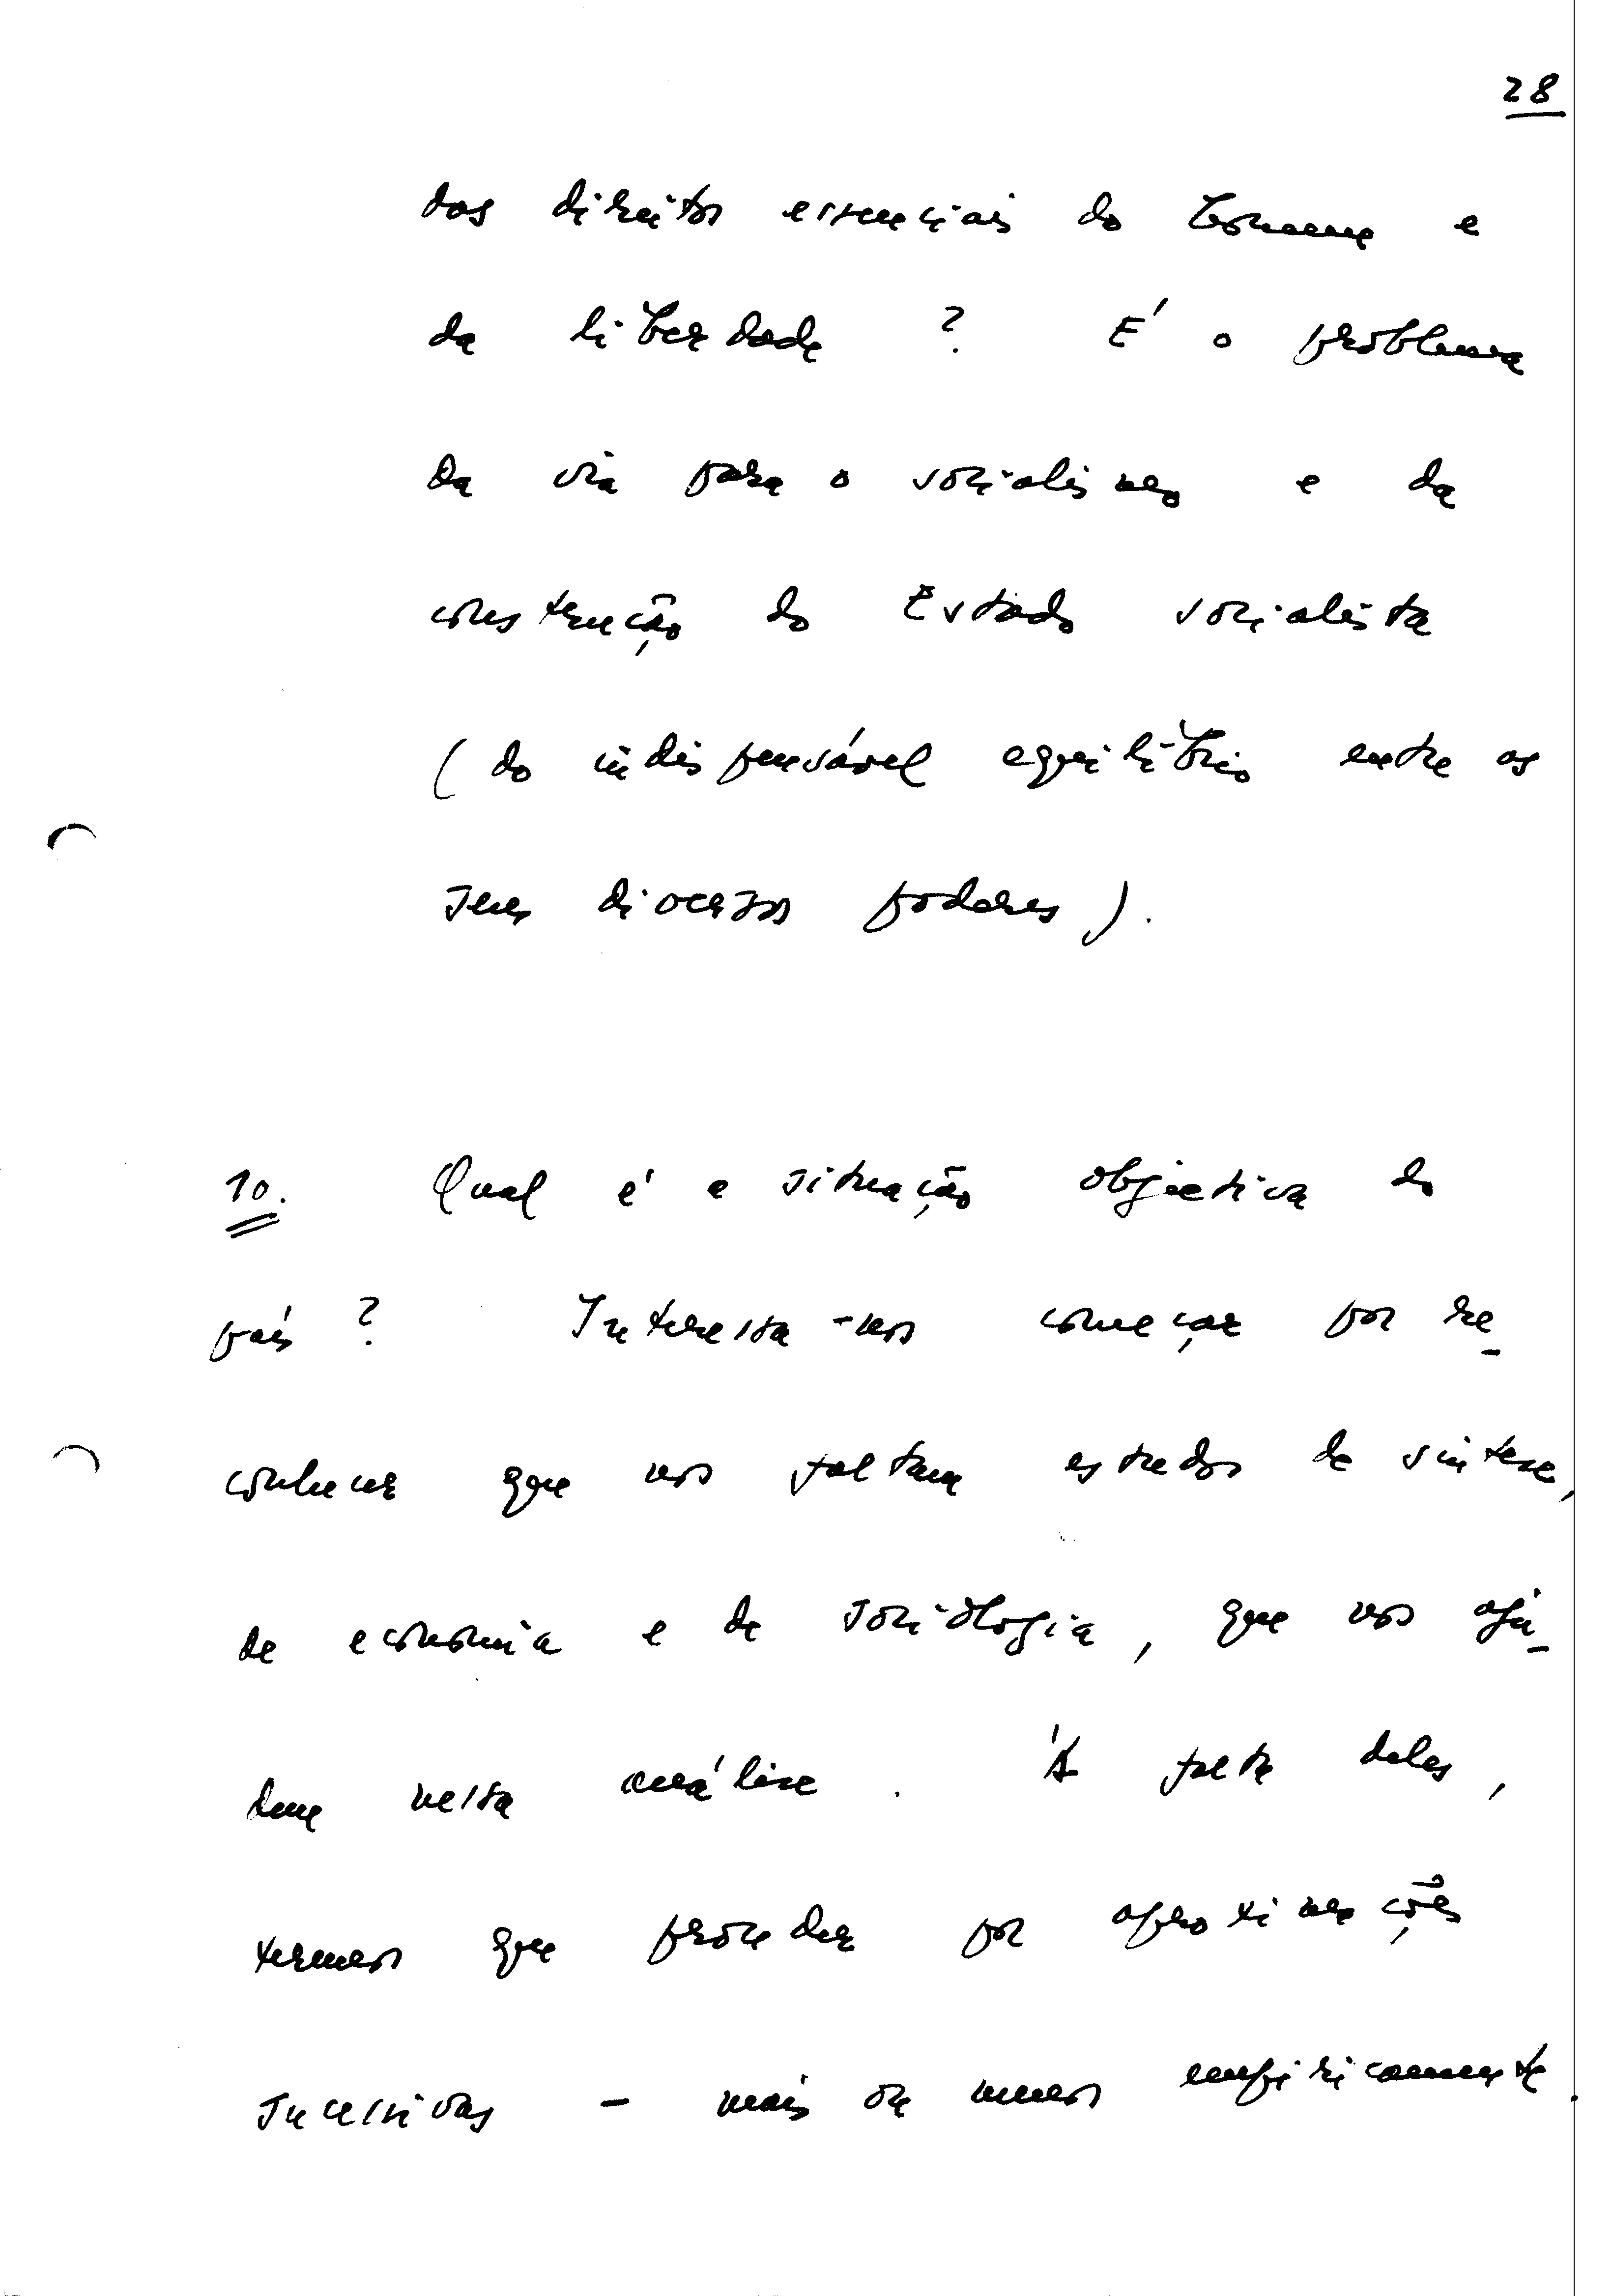 28
dos direitos essenciais do homem e
da liberdade ? É o problema
da via para o socialismo e da
construção do Estado socialista
( do indispensável equilíbrio entre os
seus diversos poderes ).
10. Qual é a situação objectiva do
país ? Interessa-nos começar por re-
conhecer que nos faltam estudos de síntese,
de economia e de sociologia, que nos aju-
dem nessa análise . À falta deles,
temos que proceder por aproximações
sucessivas - mais ou menos empiricamente.